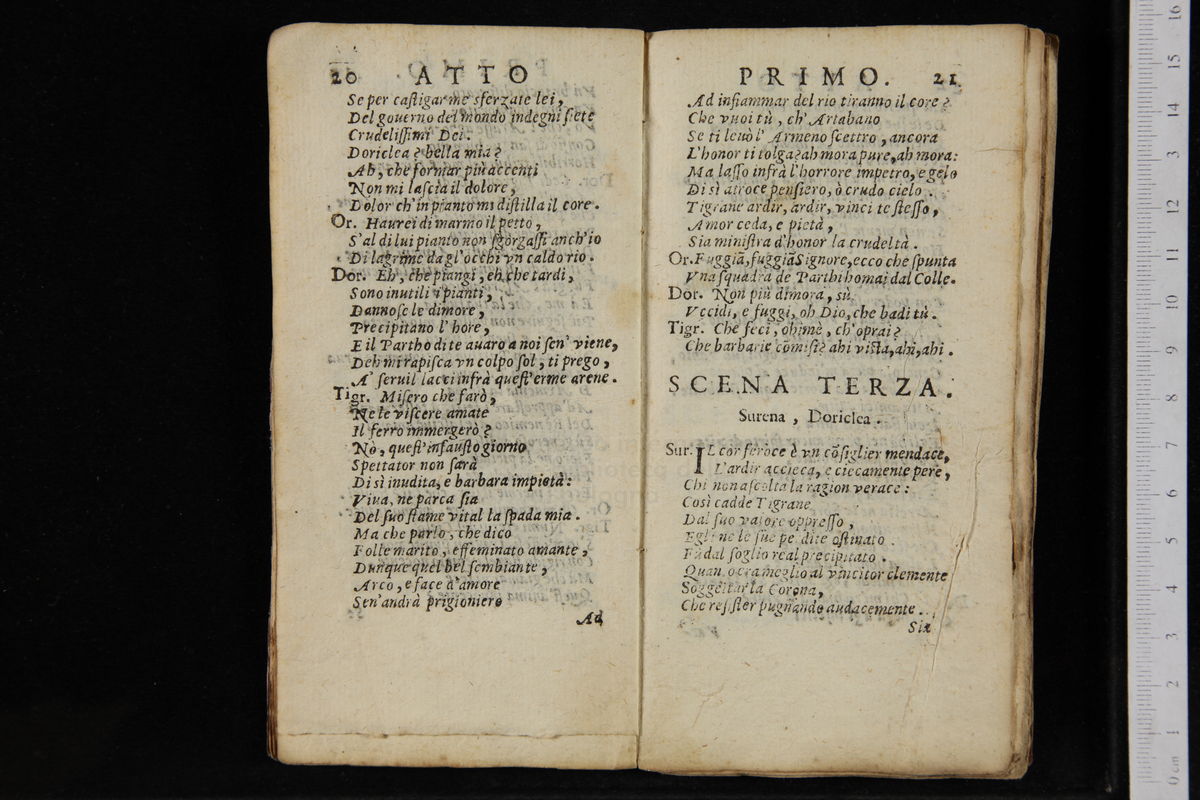 20 ATTO
Se per castigar me sferzate lei,
Del gouerno del mondo indegni siete
Crudelissimi Dei.
Doriclea? bella mia?
Ah, che formar più accenti
Non mi lascia il dolore,
Dolor ch'in pianto mi distilla il core.
Or. Haurei di marmo il petto,
S'al di lui pianto non sgorgassi anch'io
Di lagrime dagl'occhi vn caldo rio.
Dor. Eh, che piangi, eh che tardi,
Sono inutili i pianti,
Dannose le dimore,
Precipitano l'hore,
E il Partho di te auaro a noi sen' viene,
Deh mi rapisca vn colpo sol, ti prego,
A' seruil lacci infrà quest'erme arene.
Tigr. Misero che farò,
Ne le viscere amate
Il ferro immergerò?
Nò, quest'infausto giorno
Spettator non sarà
Di sì inudita, e barbara impietà:
Viua, ne parca sia
Del suo stame vital la spada mia.
Ma che parlo, che dico
Folle marito, effeminato amante,
Dunque quel bel sembiante,
Arco, e face d'amore
Sen'andrà prigioniero
Ad
PRIMO. 21
Ad infiammar del rio tiranno il core?
Che vuoi tù, ch'Artabano
Se ti leuò l'Armeno scettro, ancora
L'honor ti tolga? ah mora pure, ah mora:
Ma lasso infrà l'horrore impetro, e gelo
Di sì atroce pensiero, ò crudo cielo.
Tigrane ardir, ardir, vinci te stesso,
Amor ceda, e pietà,
Sia ministra d'honor la crudeltà.
Or. Fuggiã, fuggiã Signore, ecco che spunta
Vna squadra de Parthi homai dal Colle.
Dor. Non più dimora, sù
Vccidi, e fuggi, oh Dio, che badi tù.
Tigr. Che feci, ohimè, ch'oprai?
Che barbarie cõmisi? ahi vista, ahi, ahi.
SCENA TERZA.
Surena, Doriclea.
Sur. IL cor feroce è vn cõsiglier mendace,
L'ardir accieca, e ciecamente pere,
Chi non ascolta la ragion verace:
Così cadde Tigrane
Dal suo valore oppresso,
Egli ne le sue perdite ostinato
Fù dal soglio real precipitato.
Quan. o era meglio al vincitor clemente
Soggettar la Corona,
Che resister pugnando audacemente.
Sia